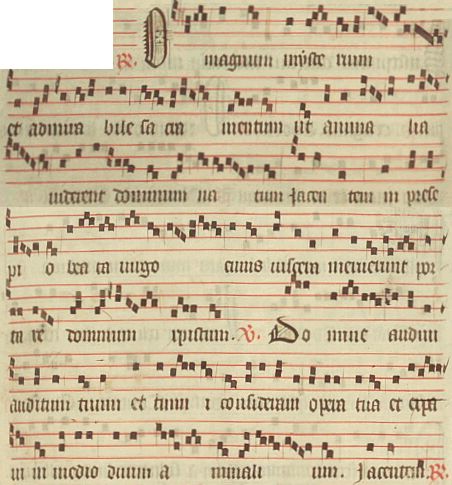 R. O magnum myste rium
et admira bile sa cra mentum ut anima lia
viderent dominum na tum Jacen tem in prese
pi o bea ta virgo cuius viscera meruerunt por
ta re dominum xpistum. V. Do mine audivi
auditum tuum et timui consideravi opera tua et expa
vi in medio duum a nimali um. Jacentem R.